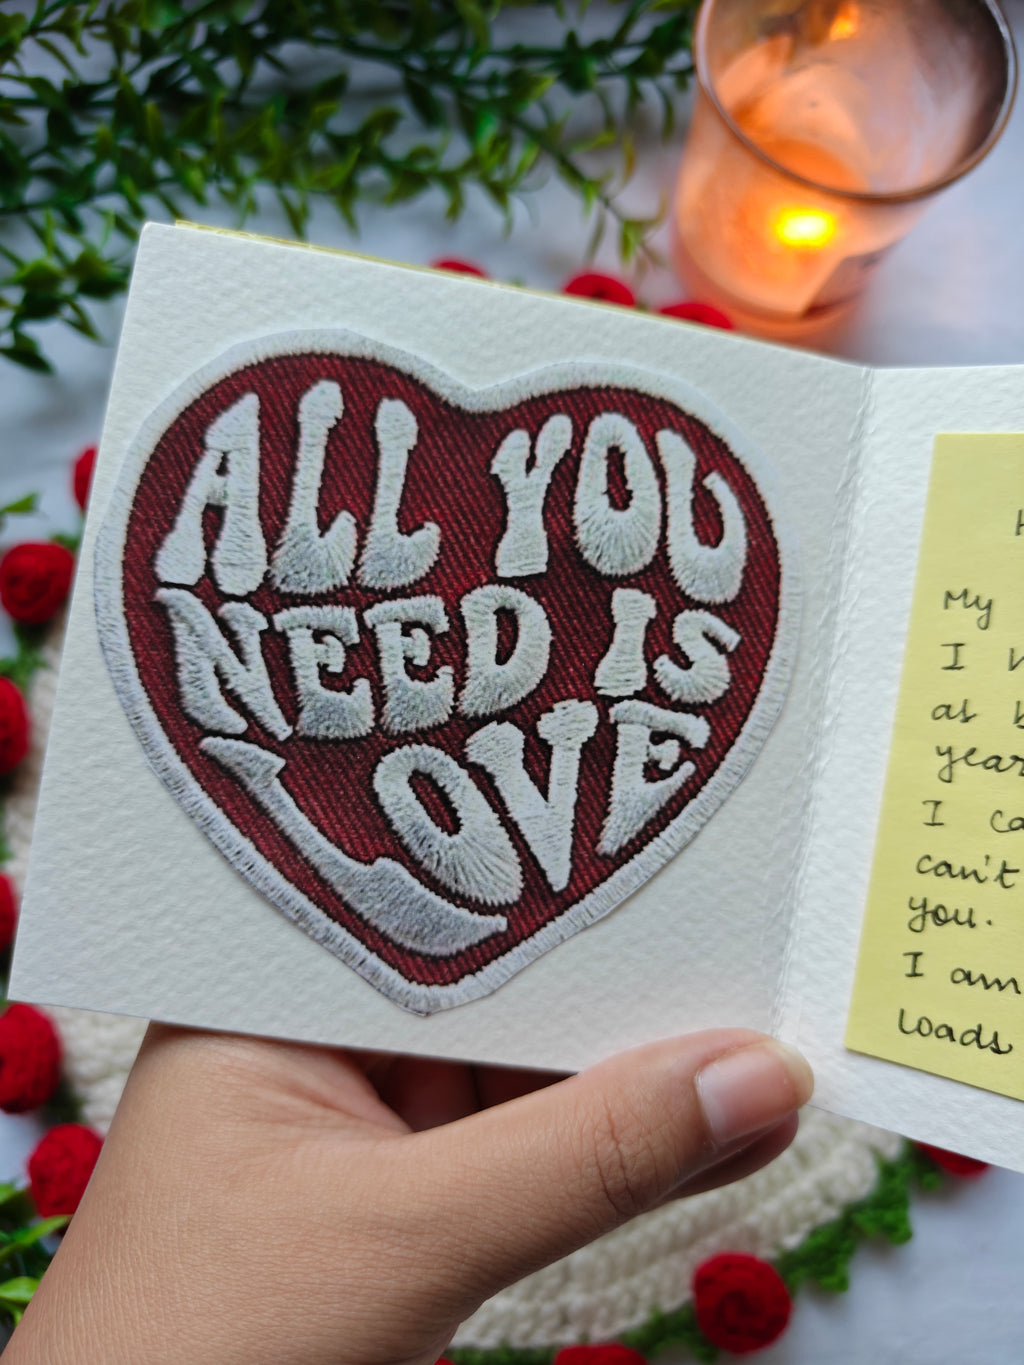 ALL YOU
NEED IS
LOVE
My
I
as
year
I
can't
you.
I am
loads